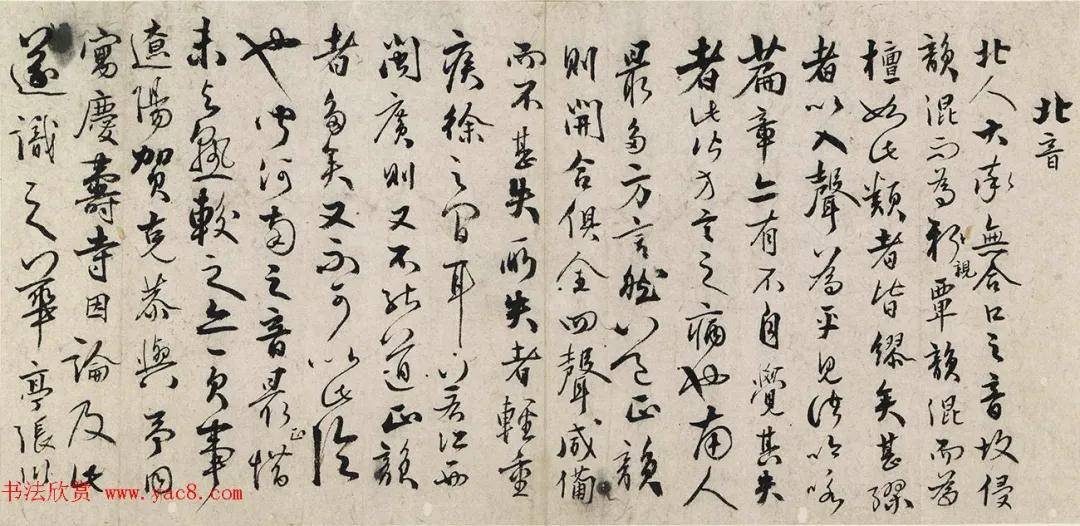 北音
北人大率無合口之音故侵
韻混而為親覃韻混而為
檀如此類者皆繆矣甚
者以入聲為平見諸吟咏
篇章亦有不自覺其失
者此皆方言之痛也南人
最多方言然以正韻
則開合俱全四聲咸備
而不甚失所失者輕重
疾徐之間耳以若江西
閩廣則又不能道正韻
者多矣又不可以此論
也中河南之音最正惜
未與熟較之亦一負事
遼陽賀克恭與予同
寓慶壽寺因論及此
遂識之以華亭張
书法欣赏 www.yac8.com